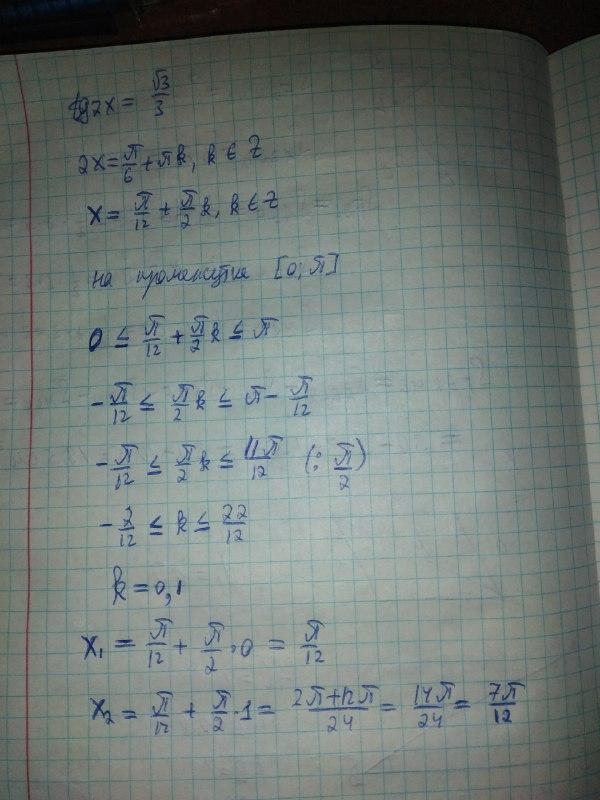 tg2x = √3/3
2x = π/6 + πk, k ∈ Z
x = π/12 + π/2 k, k ∈ Z
на промежутке [0; π]
0 ≤ π/12 + π/2 k ≤ π
-π/12 ≤ π/2 k ≤ π - π/12
-π/12 ≤ π/2 k ≤ 11π/12 (: π/2)
-2/12 ≤ k ≤ 22/12
k = 0, 1
x₁ = π/12 + π/2 · 0 = π/12
x₂ = π/12 + π/2 · 1 = 2π+12π/24 = 14π/24 = 7π/12